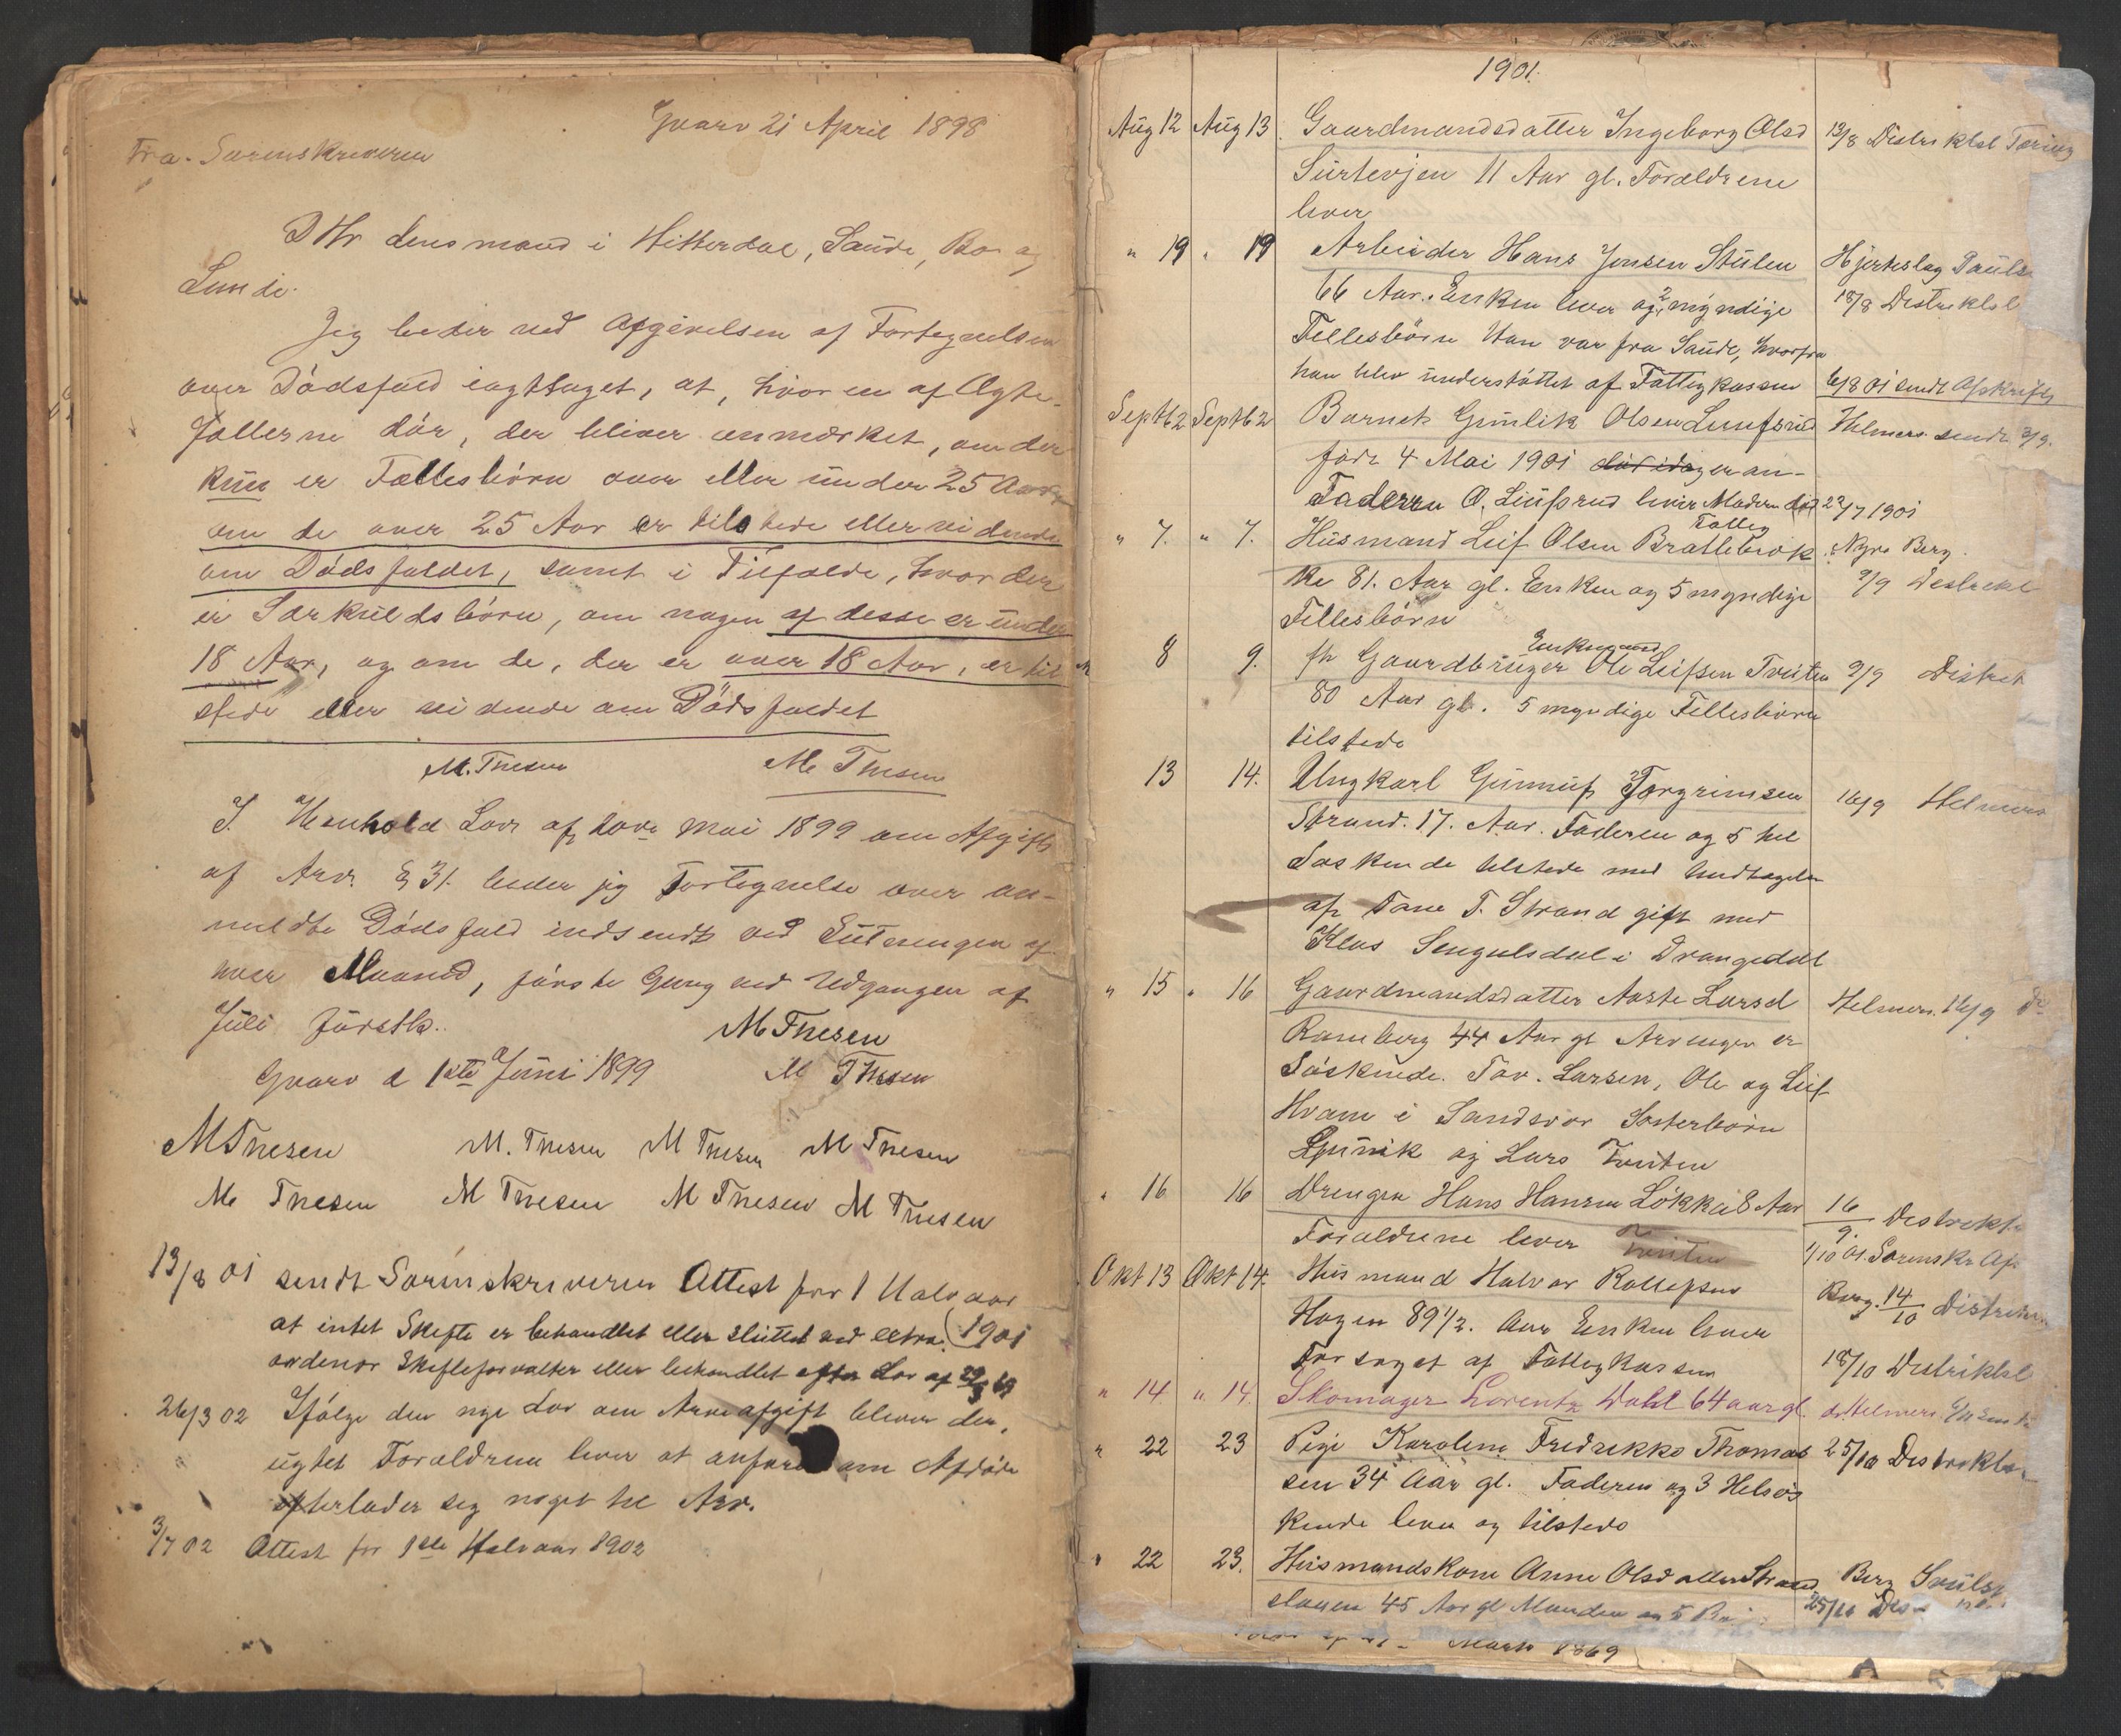 Gvarv 21 April 1898
Fra Sorenskriveren
Hr Lensmand i Hitterdal, Saude, Bø og
Lunde.
Jeg beder ved Afgivelsen af Fortegnelsen
over Dødsfald iagttaget, at, hvor en af Ægte-
fællerne dør, der bliver anmærket, om der
kun er Fællesbørn over eller under 25 Aar,
om de over 25 Aar er tilstede eller vidende
om Dødsfaldet, samt i Tilfælde, hvor der
er Særkuldsbørn, om nogen af desse er under
18 Aar, og om de, der er over 18 Aar, er til
stede eller vidende om Dødsfaldet
M. Thesen M Thesen
I Henhold Lov af Mai 1899 om Afgift
af Arv § 31 beder jeg Fortegnelse over an-
meldte Dødsfald indsendt ved Slutningen af
hver Maaned, første Gang ved Udgangen af
Juli førstk. M Thesen
Gvarv d 1ste Juni 1899 M Thesen
M Thesen M. Thesen M Thesen M Thesen
M Thesen M Thesen M Thesen M Thesen
13/8 01 sendt Sorenskriveren Attest for 1 Halvaar
at intet Skifte er behandlet eller sluttet ved extra (1901
ordenær Skifteforvalter eller behandlet efter Lov af
26/3 02 Ifølge den nye Lov om Arveafgift bliver der,
Forældrene lever at anføre om Afdøde
efterlader sig noget til Arv.
3/7 02 Attest for 1ste Halvaar 1902
1901.
Aug 12 Aug 13 Gaardmandsdatter Ingeborg Olsd 13/8 Distriktsl
Surtevjen 11 Aar gl. Forældrene
lever
" 19 " 19 Arbeider Hans Jensen Stulen Hjerteslag
66 Aar. Enken lever og 2 myndige 18/8 Distriktsl
Fellesbørn Han var fra Saude, hvorfra
han blev understøttet af Fattigkassen sendt Afskrift
Septb 2 Septb 2 Barnet Gunlik Olsen Lunfsrud Helmers sendt 3/9.
født 4 Mai 1901
Faderen O. Lufsrud lever Moderen død 23/7 1901
Fattig
" 7. " 7. Husmand Leif Olsen Brattebrok Nyre Berg.
ke 81. Aar gl. Enken og 5 myndige 9/9 Destrikt
Fellesbørn
Enkemand
" 8 9. fh Gaardbruger Ole Leifsen Tveiten 9/9 Distrikt
80 Aar gl. 5 myndige Fellesbørn
tilstede
13 14. Ungkarl Gunnuf Torgrimsen 16/9 Helmers
Strand. 17. Aar. Faderen og 5 hel
Søskende tilstede med Undtagelse
af Tone T. Strand gift med
Klas i Drangedal
" 15 " 16 Gaardmandsdatter Aaste Larsd Helmers. 16/9
Ramberg 44 Aar gl Arvinger er
Søskende. Tov. Larsen, Ole og Leif
Hvam i Sandsvær Søsterbørn
Gunik og Lars Tveiten
" 16 16 Drengen Hans Hansen Løkka 8 Aar 16/9. Destrikts
Forældrene lever Tveiten 1/10 01. Sorenskr Afs
Okt 13 Okt 14. Husmand Halvor Rollefsen Berg. 14/10 Distrikts
Hagen 89 1/2. Aar Enken lever
Forsørget af Fattigkassen 18/10 Destriktsl
" 14 " 14. Skomager Lorentz Dahl 64 aar gl. dr Helmers
" 22 23 Pige Karoline Fredrikke Thomas 25/10 Destriktsl
sen 34 Aar gl. Faderen og 3 Helsøs
kende lever og tilstede
" 22 23. Husmandskone Anne Olsdatter Strand Berg
slauen 45 Aar gl Manden og 5 25/10
Marts 1869